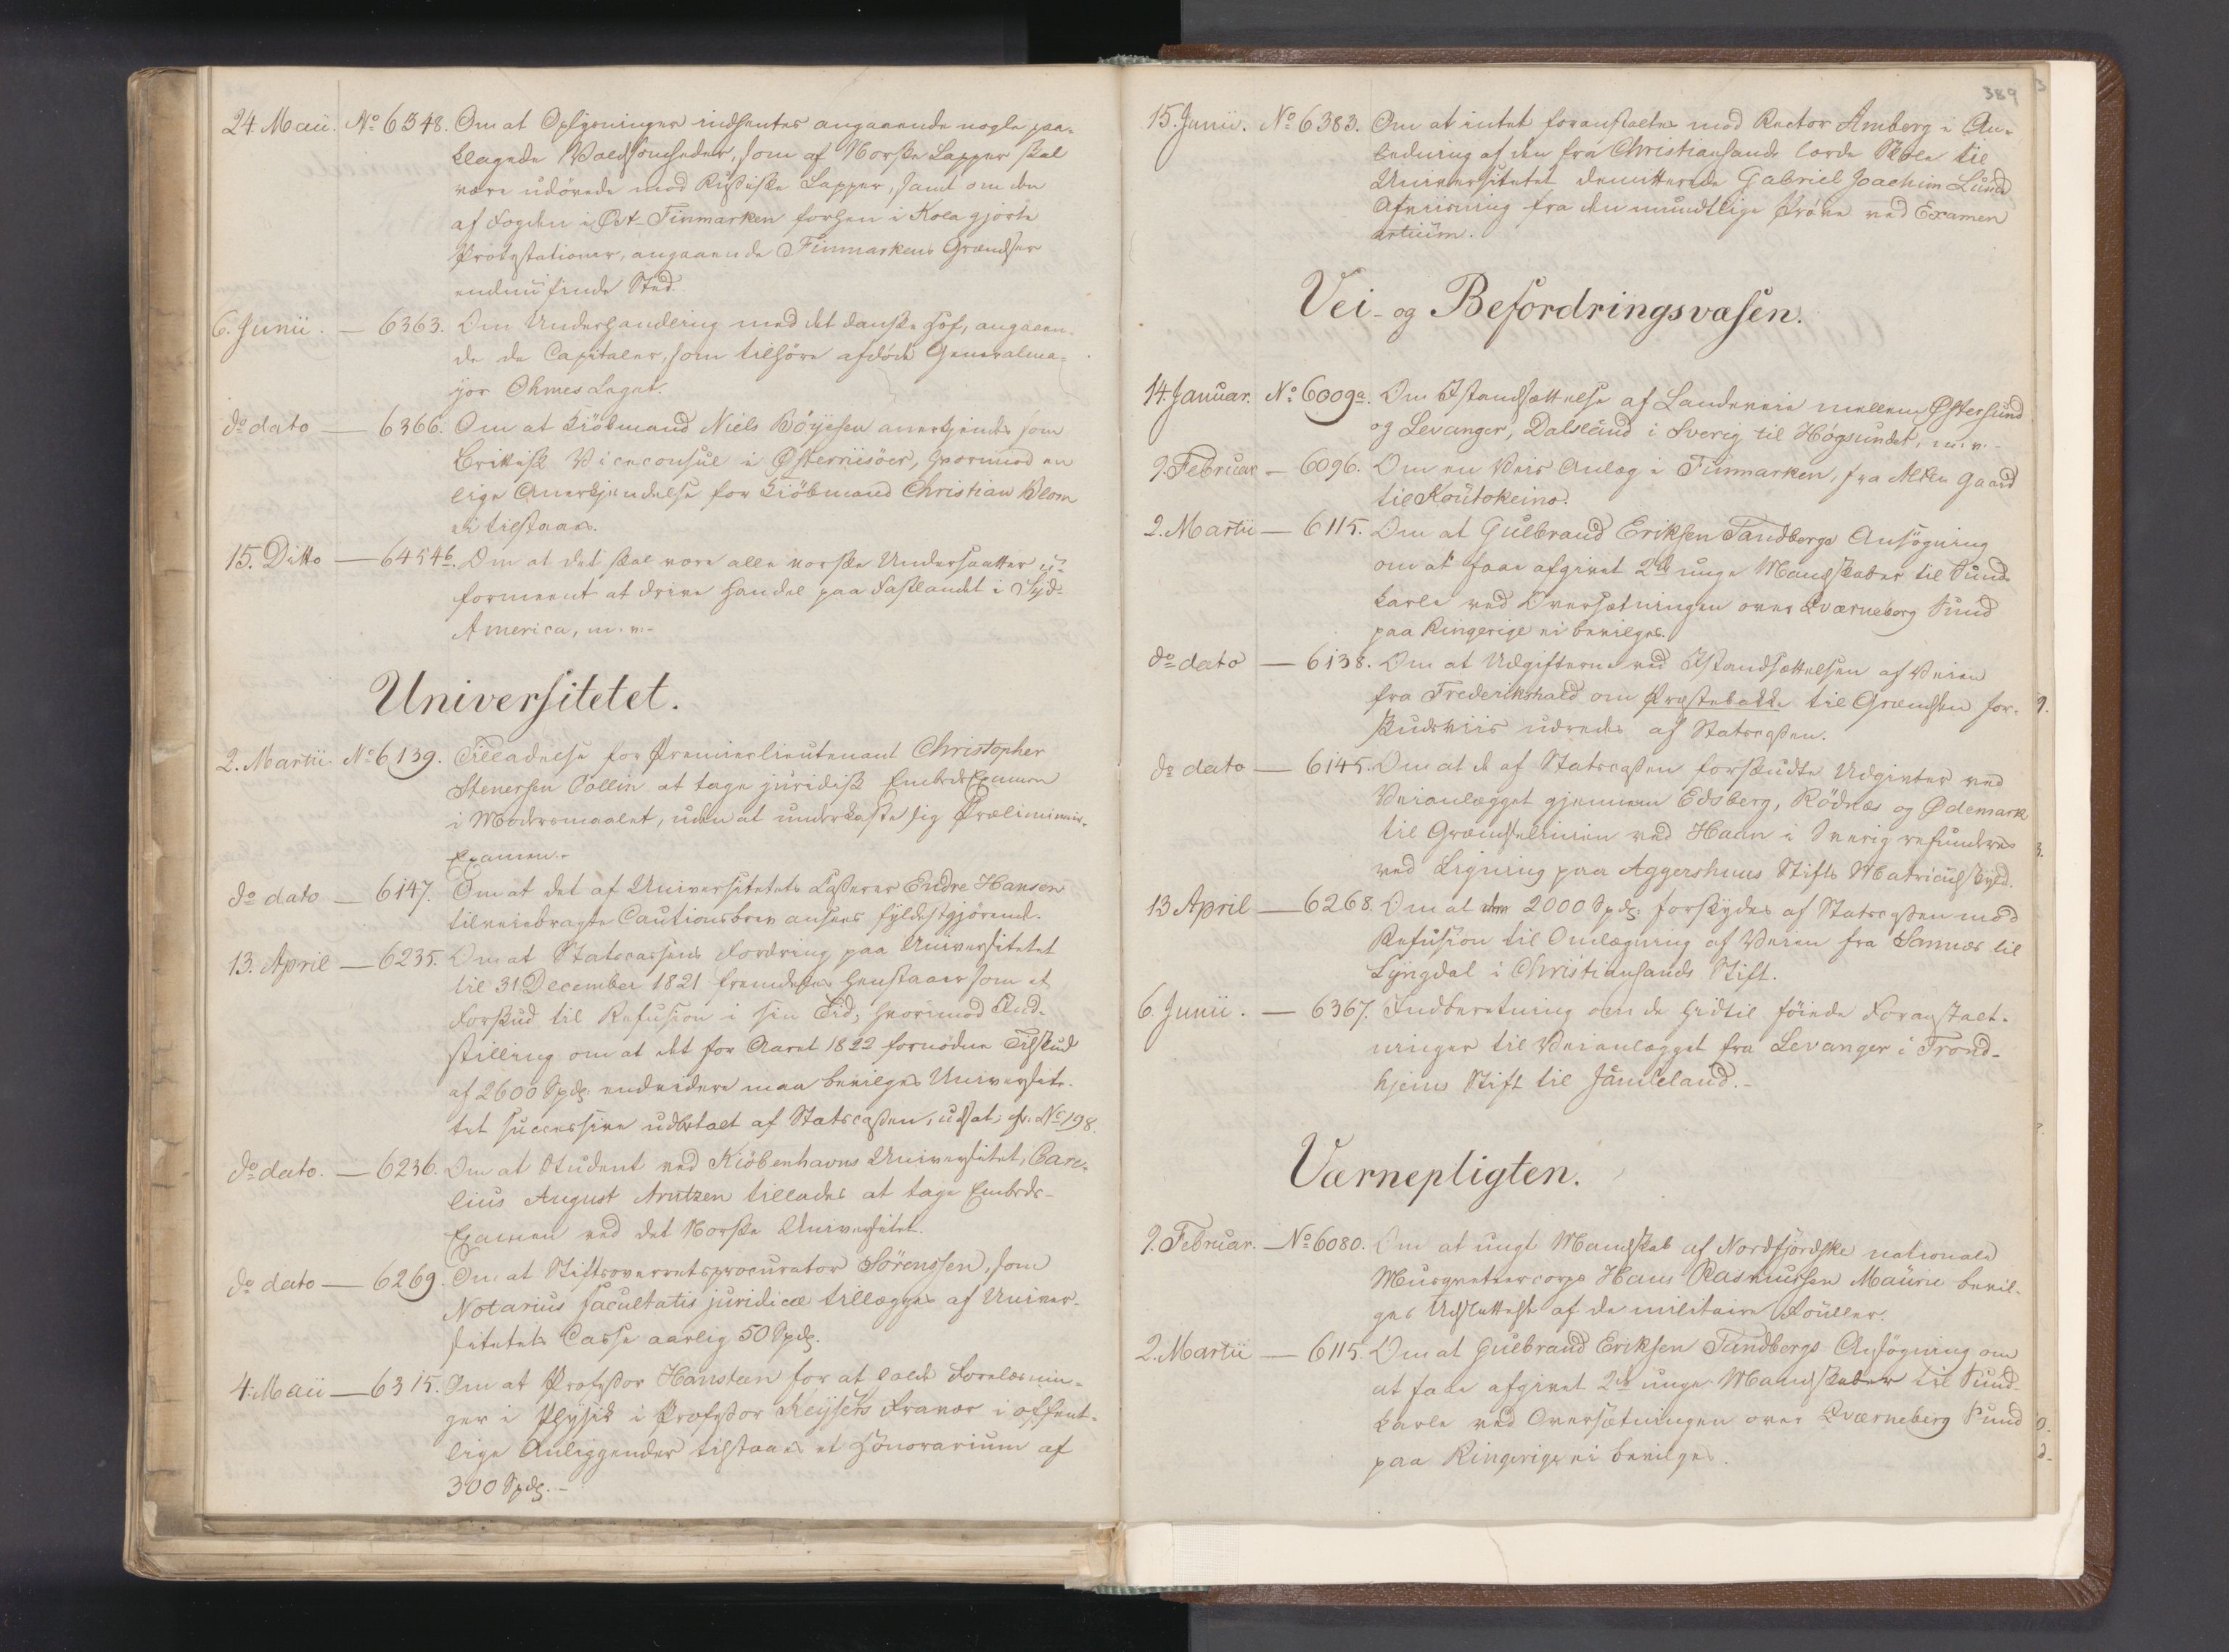 24. Maii. No 6348. Om at Oplysninger indhentes angaaende nogle paa-
klagede Voldsomheder, som af Norske Lapper skal
være udövede mod Russiske Lapper, samt om den
af Fogden i Ost-Finmarken forhen i Kola gjorte
Protestationer, angaaende Finmarkens Grændser
endnu finde Sted.
6. Junii. — 6363. Om Underhandling med det danske Hof, angaaen-
de de Capitaler, som tilhöre afdöde Generalma-
jor Ohmes Legat.
do dato — 6366. Om at Kiöbmand Niels Böyesen anerkjendes som
Brittisk Viceconsul i Österriisöer, hvorimod en
lige Anerkjendelse for Kiöbmand Christian Blom
ei tilstaaes.
15. Ditto — 6454b. Om at det skal være alle norske Undersaatter u-
formeent at drive Handel paa Fastlandet i Syd-
America, m. v.-
Universitetet.
2. Martii. No 6139. Tilladelse for Premierlieutenant Christopher
Stenersen Collin at tage juridisk Embeds Examen
i Modersmaalet, uden at underkaste sig Præliminair-
Examen.-
do dato — 6147. Om at det af Universitetets Casserer Endre Hansen
tilveiebragte Cautionsbrev ansees fyldestgjörende.
13. April — 6235. Om at Statscassens Fordring paa Universitetet
til 31 December 1821 fremdeles henstaaer som et
Forskud til Refusion i sin Tid, hvorimod Ind-
stilling om at det for Aaret 1822 fornödne Tilskud
af 2600 Spd. endvidere maa bevilges Universite-
tet successive udbetalt af Statscassen, udsat; cfr. No 198.
do dato. — 6236. Om at Student ved Kiöbenhavns Universitet, Care-
lius August Arntzen tillades at tage Embeds-
Examen ved det Norske Universitet.
do dato — 6269. Om at Stiftsoverretsprocurator Sörenssen, som
Notarius facultatis juridicæ tillægges af Univer-
sitetets Casse aarlig 50 Spd.
4. Maii — 6315. Om at Professor Hansteen for at holde Forelæsnin-
ger i Physik i Professor Keysers Fravær i offent-
lige Anliggender tilstaaes et Honorarium af
300 Spd.-
389
15. Junii. No 6383. Om at intet foranstaltes mod Rector Amberg i An-
ledning af den fra Christiansands lærde Skole til
Universitetet demitterede Gabriel Joachim Lunds
Afviisning fra den mundtlige Pröve ved Examen
artium.
Vei- og Befordringsvæsen.
14. Januar. No 6009a. Om Istandsættelse af Landeveie mellem Østersund
og Levanger, Dalsland i Sverig til Høgsundet, m. v.-
9. Februar — 6096. Om en Veis Anlæg i Finmarken, fra Alten Gaard
til Koutokeino.
2. Martii — 6115. Om at Gulbrand Eriksen Tandbergs Ansögning
om at faae afgivet 2de unge Mandskaber til Sund-
karle ved Oversætningen over Qværneberg Sund
paa Ringerige ei bevilges.
do dato — 6138. Om at Udgifterne ved Istandsættelsen af Veien
fra Frederikshald om Præstebakke til Grændsen for-
skudsviis udredes af Statscassen.
do dato — 6145. Om at de af Statscassen forskudte Udgivter ved
Veianlægget gjennem Edsberg, Rödnæs og Ødemark
til Grændselinien ved Haan i Sverig refunderes
ved Ligning paa Aggershuus Stifts Matriculskyld.
13 April — 6268. Om at 2000 Spd. forskydes af Statscassen mod
Refusion til Omlægning af Veien fra Samnæs til
Lyngdal i Christiansands Stift.
6. Junii. — 6367. Indberetning om de hidtil föiede Foranstalt-
ninger til Veianlægget fra Levanger i Trond-
hjems Stift til Jämteland.-
Værnepligten.
9. Februar. — No 6080. Om at ungt Mandskab af Nordfjordske nationale
Musqueteercorps Hans Rasmussen Maurie bevil-
ges Udslettelse af de militaire Rouller.
2. Martii — 6115. Om at Gulbrand Eriksen Tandbergs Ansögning om
at faae afgivet 2de unge Mandskaber til Sund-
karle ved Oversætningen over Qværneberg Sund
paa Ringerige ei bevilges.